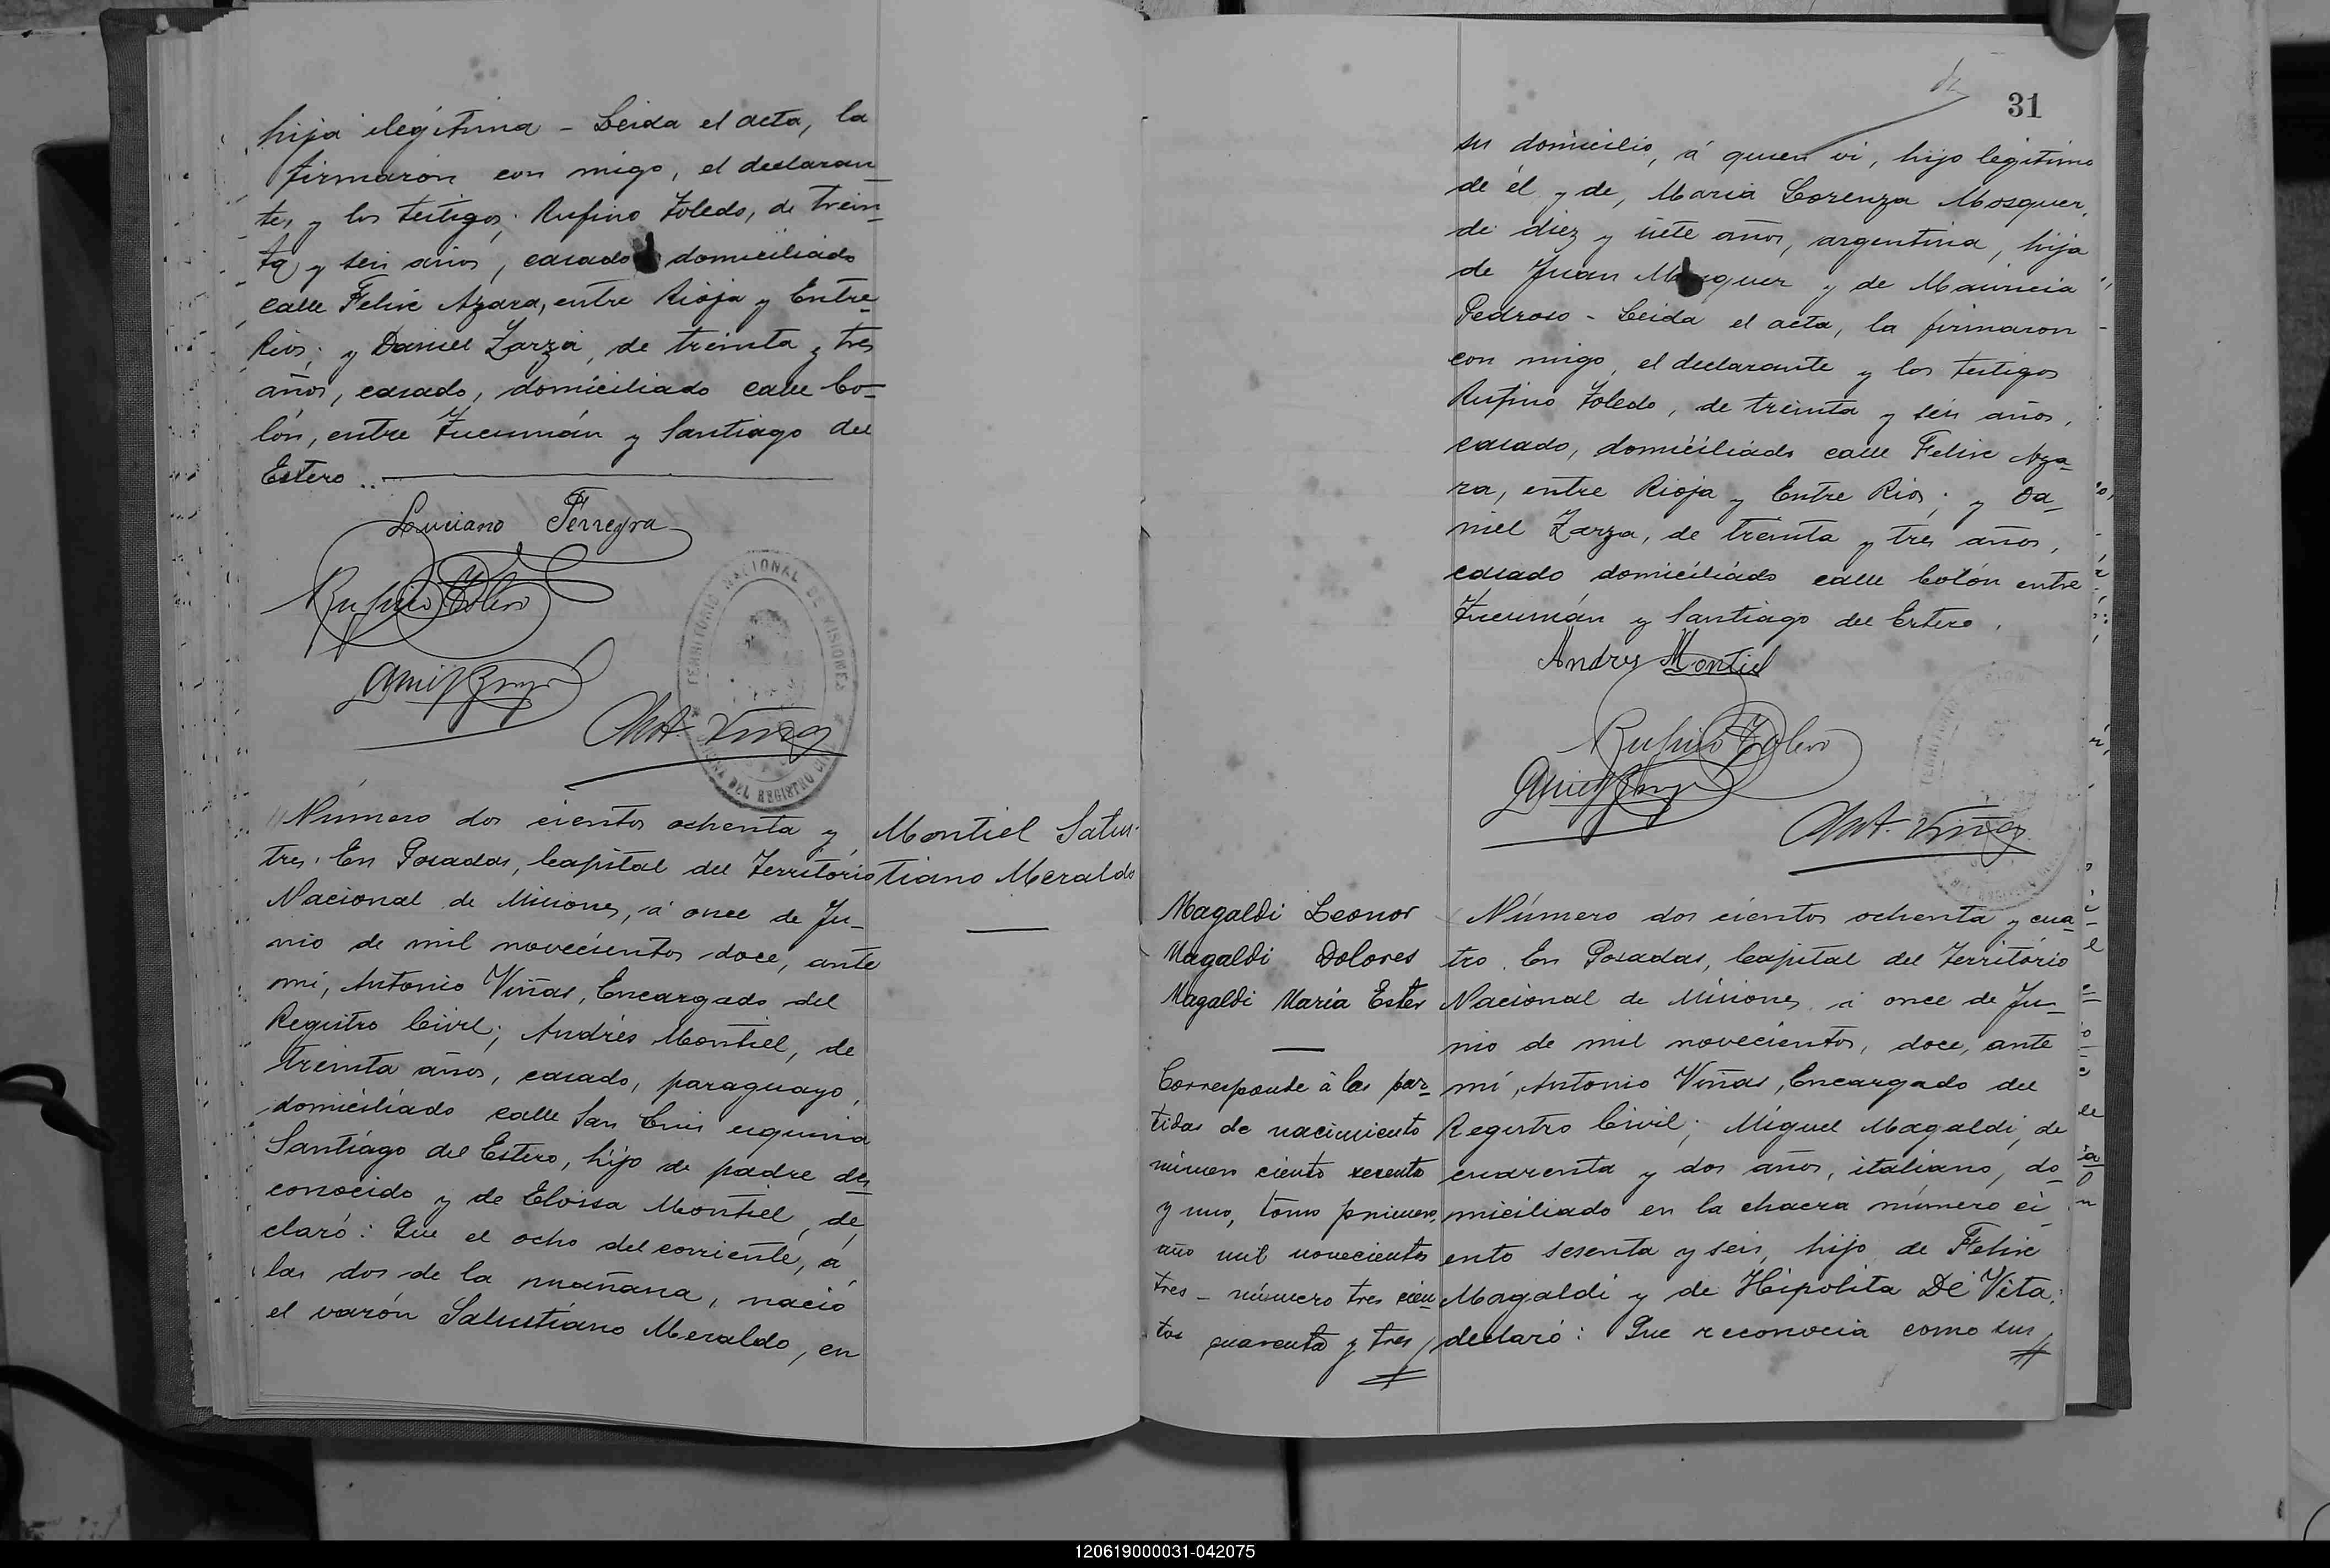 hija ilegítima - Leida el acta, la
firmaron con migo, el declaran-
te, y los testigos; Rufino Toledo, de trein-
ta y seis años, casado domiciliado
calle Felix Azara, entre Rioja y Entre-
Rios; y Daniel Zarza, de treinta y tres
años, casado, domiciliado calle Co-
lón, entre Tucumán y Santiago del
Estero..
Luciano Ferreyra
Rufino Toledo
Ant. Viñas
TERRITORIO NACIONAL DE MISIONES
OFICINA DEL REGISTRO CIVIL
Número dos cientos ochenta y
tres. En Posadas, Capital del Territorio
Nacional de Misiones, á once de Ju-
nio de mil novecientos doce, ante
mí, Antonio Viñas, Encargado del
Registro Civil; Andrés Montiel, de
treinta años, casado, paraguayo,
domiciliado calle San Luis esquina
Santiago del Estero, hijo de padre des-
conocido y de Eloisa Montiel, de
claró: Que el ocho del corriente, á
las dos de la mañana, nació
el varón Salustiano Meraldo, en
Montiel Salus-
tiano Meraldo
31
su domicilio, á quien vi, hijo legítimo
de él y de, Maria Lorenza Mosquer,
de diez y siete años, argentina, hija
de Juan Mosquer y de Mauricia
Pedroso - Leida el acta, la firmaron
con migo, el declarante y los testigos
Rufino Toledo, de treinta y seis años,
casado, domiciliado calle Felix Aza-
ra, entre Rioja y Entre Rios; y Da-
niel Zarza, de treinta y tres años,
casado domiciliado calle Colón entre
Tucumán y Santiago del Estero.
Andres Montiel
Rufino Toledo
Ant. Viñas
Magaldi Leonor
Magaldi Dolores
Magaldi María Ester
Corresponde à las par-
tidas de nacimiento
número ciento sesenta
y uno, tomo primero,
año mil novecientos
tres - número tres cien
tos cuarenta y tres
Número dos cientos ochenta y cua-
tro. En Posadas, Capital del Territorio
Nacional de Misiones, á once de Ju-
nio de mil novecientos, doce, ante
mí, Antonio Viñas, Encargado del
Registro Civil; Miguel Magaldi, de
cuarenta y dos años, italiano, do-
miciliado en la chacra número ci-
ento sesenta y seis, hijo de Felix
Magaldi y de Hipolita De Vita;
declaró: Que reconocia como sus
120619000031-042075